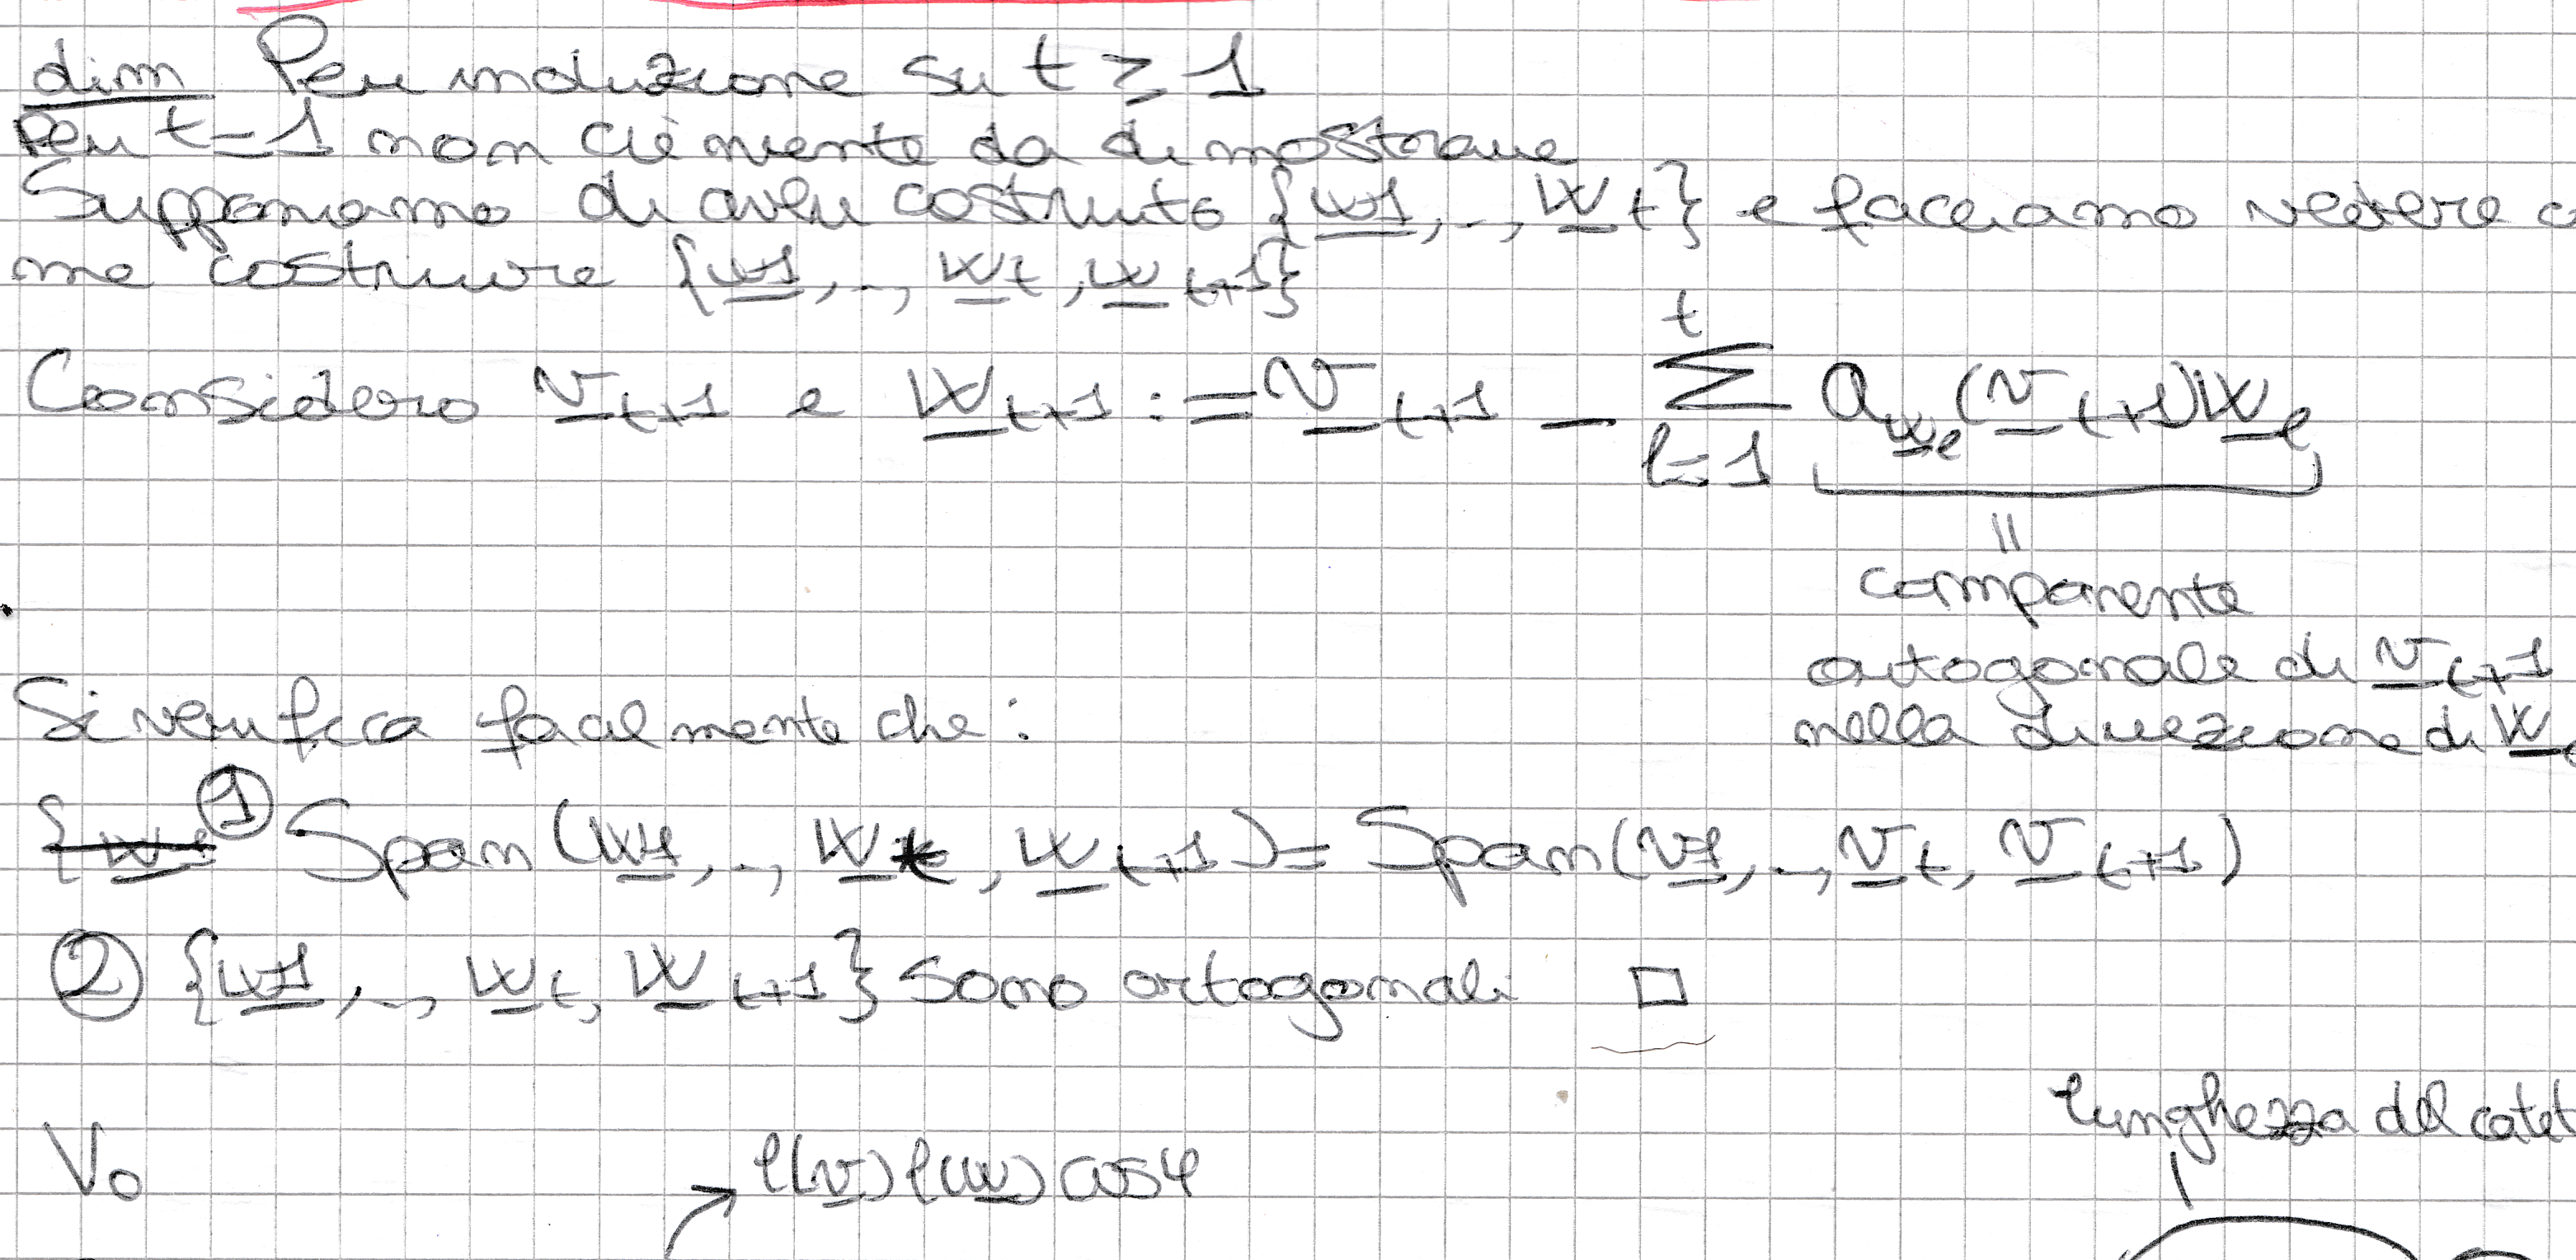 dim Per induzione su t ≥ 1
Per t=1 non c'è niente da dimostrare
Supponiamo di aver costruito {w1, .., wt} e facciamo vedere co
me costruire {w1, .., wt, wt+1}
Considero vt+1 e wt+1 := vt+1 - Σ_{l=1}^{t} a_{wl}(vt+1)wl
||
componente
ortogonale di vt+1
nella direzione di wl
Si verifica facilmente che:
① Span(w1, .., wt, wt+1) = Span(v1, .., vt, vt+1)
② {w1, .., wt, wt+1} sono ortogonali □
lunghezza del catet
Vo
l(v)l(w)cosφ